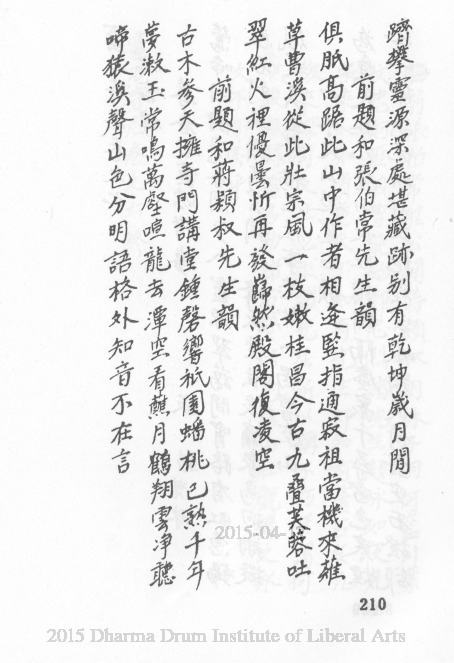 躋攀靈源深處堪藏跡別有乾坤歲月閒
前題和張伯常先生韻
俱胝高踞此山中作者相逢竪指通寂祖當機來薙
草曹溪從此壯宗風一枝嫩桂昌今古九疊芙蓉吐
翠紅火裡優曇忻再發巋然殿閣復凌空
前題和蔣穎叔先生韻
古木參天擁寺門講堂鍾磬響祇園蟠桃已熟千年
夢漱玉常鳴萬壑喧龍去潭空看蘸月鶴翔雲净聽
啼猿溪聲山色分明語格外知音不在言
2015-04-
210
2015 Dharma Drum Institute of Liberal Arts